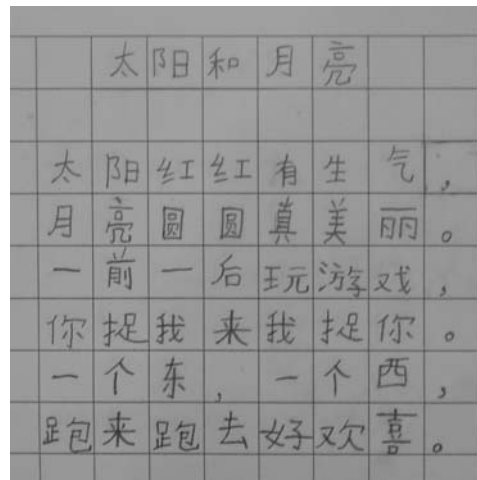 太阳和月亮
太阳红红有生气,
月亮圆圆真美丽。
一前一后玩游戏,
你捉我来我捉你。
一个东,一个西,
跑来跑去好欢喜。